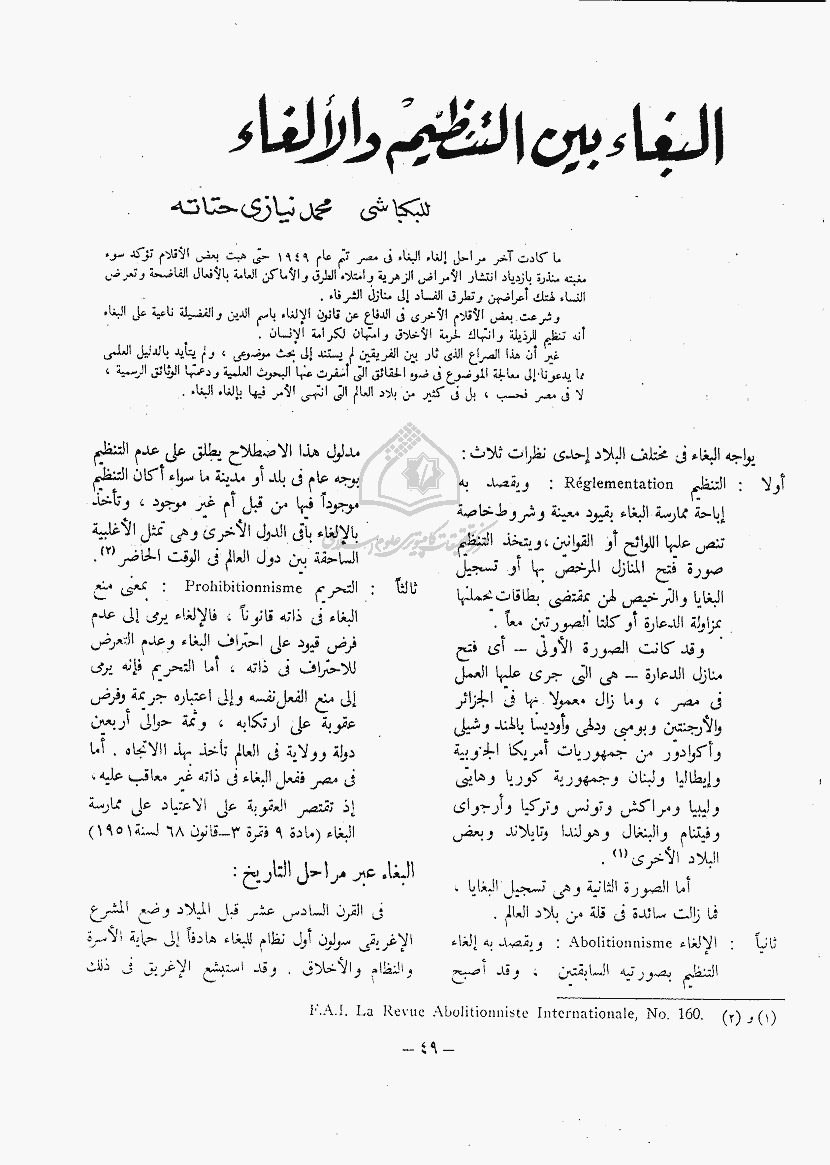 البغاء بين التنظيم والألغاء
للبكباشى محمد نيازى حتاته
ما كادت آخر مراحل إلغاء البغاء فى مصر تتم عام ١٩٤٩ حتى هبت بعض الأقلام تؤكد سوء
مغبته منذرة بازدياد انتشار الأمراض الزهرية وامتلاء الطرق والأماكن العامة بالأفعال الفاضحة وتعرض
النساء لهتك أعراضهن وتطرق الفساد إلى منازل الشرفاء .
وشرعت بعض الأقلام الأخرى فى الدفاع عن قانون الإلغاء باسم الدين والفضيلة ناعية على البغاء
أنه تنظيم للرذيلة وانتهاك لحرمة الأخلاق وامتهان لكرامة الإنسان .
غير أن هذا الصراع الذى ثار بين الفريقين لم يستند إلى بحث موضوعى ، ولم يتأيد بالدليل العلمى
مما يدعونا إلى معالجة الموضوع فى ضوء الحقائق التى أسفرت عنها البحوث العلمية ودعمتها الوثائق الرسمية ،
لا فى مصر فحسب ، بل فى كثير من بلاد العالم التى انتهى الأمر فيها بإلغاء البغاء .
يواجه البغاء فى مختلف البلاد إحدى نظرات ثلاث :
أولا : التنظيم Réglementation : ويقصد به
إباحة ممارسة البغاء بقيود معينة وشروط خاصة
تنص عليها اللوائح أو القوانين، ويتخذ التنظيم
صورة فتح المنازل المرخص بها أو تسجيل
البغايا والترخيص لهن بمقتضى بطاقات يحملنها
بمزاولة الدعارة أو كلتا الصورتين معاً .
وقد كانت الصورة الأولى – أى فتح
منازل الدعارة – هى التى جرى عليها العمل
فى مصر ، وما زال معمولا بها فى الجزائر
والأرجنتين وبومبى ودلهى وأوديسا بالهند وشيلى
وأكوادور من جمهوريات أمريكا الجنوبية
وإيطاليا ولبنان وجمهورية كوريا وهايتى
وليبيا ومراكش وتونس وتركيا وأرجواى
وفيتنام والبنغال وهولندا وتايلاند وبعض
البلاد الأخرى (١) .
أما الصورة الثانية وهى تسجيل البغايا ،
فما زالت سائدة فى قلة من بلاد العالم .
ثانياً : الإلغاء Abolitionnisme : ويقصد به إلغاء
التنظيم بصورتيه السابقتين ، وقد أصبح
مدلول هذا الاصطلاح يطلق على عدم التنظيم
بوجه عام فى بلد أو مدينة ما سواء أكان التنظيم
موجوداً فيها من قبل أم غير موجود ، وتأخذ
بالإلغاء باقى الدول الأخرى وهى تمثل الأغلبية
الساحقة بين دول العالم فى الوقت الحاضر (٢).
ثالثاً : التحريم Prohibitionnisme : بمعنى منع
البغاء فى ذاته قانوناً ، فالإلغاء يرمى إلى عدم
فرض قيود على احتراف البغاء وعدم التعرض
للاحتراف فى ذاته ، أما التحريم فإنه يرى
إلى منع الفعل نفسه وإلى اعتباره جريمة وفرض
عقوبة على ارتكابه ، وثمة حوالى أربعين
دولة وولاية فى العالم تأخذ بهذ الاتجاه . أما
فى مصر ففعل البغاء فى ذاته غير معاقب عليه،
إذ تقتصر العقوبة على الاعتياد على ممارسة
البغاء (مادة ٩ فقرة ٣–قانون ٦٨ لسنة ١٩٥١)
البغاء عبر مراحل التاريخ :
فى القرن السادس عشر قبل الميلاد وضع المشرع
الإغريقى سولون أول نظام للبغاء هادفاً إلى حماية الأسرة
والنظام والأخلاق . وقد استبشع الإغريق فى ذلك
(١) و (٢) F.A.I. La Revue Abolitionniste Internationale, No. 160.
— ٤٩ —